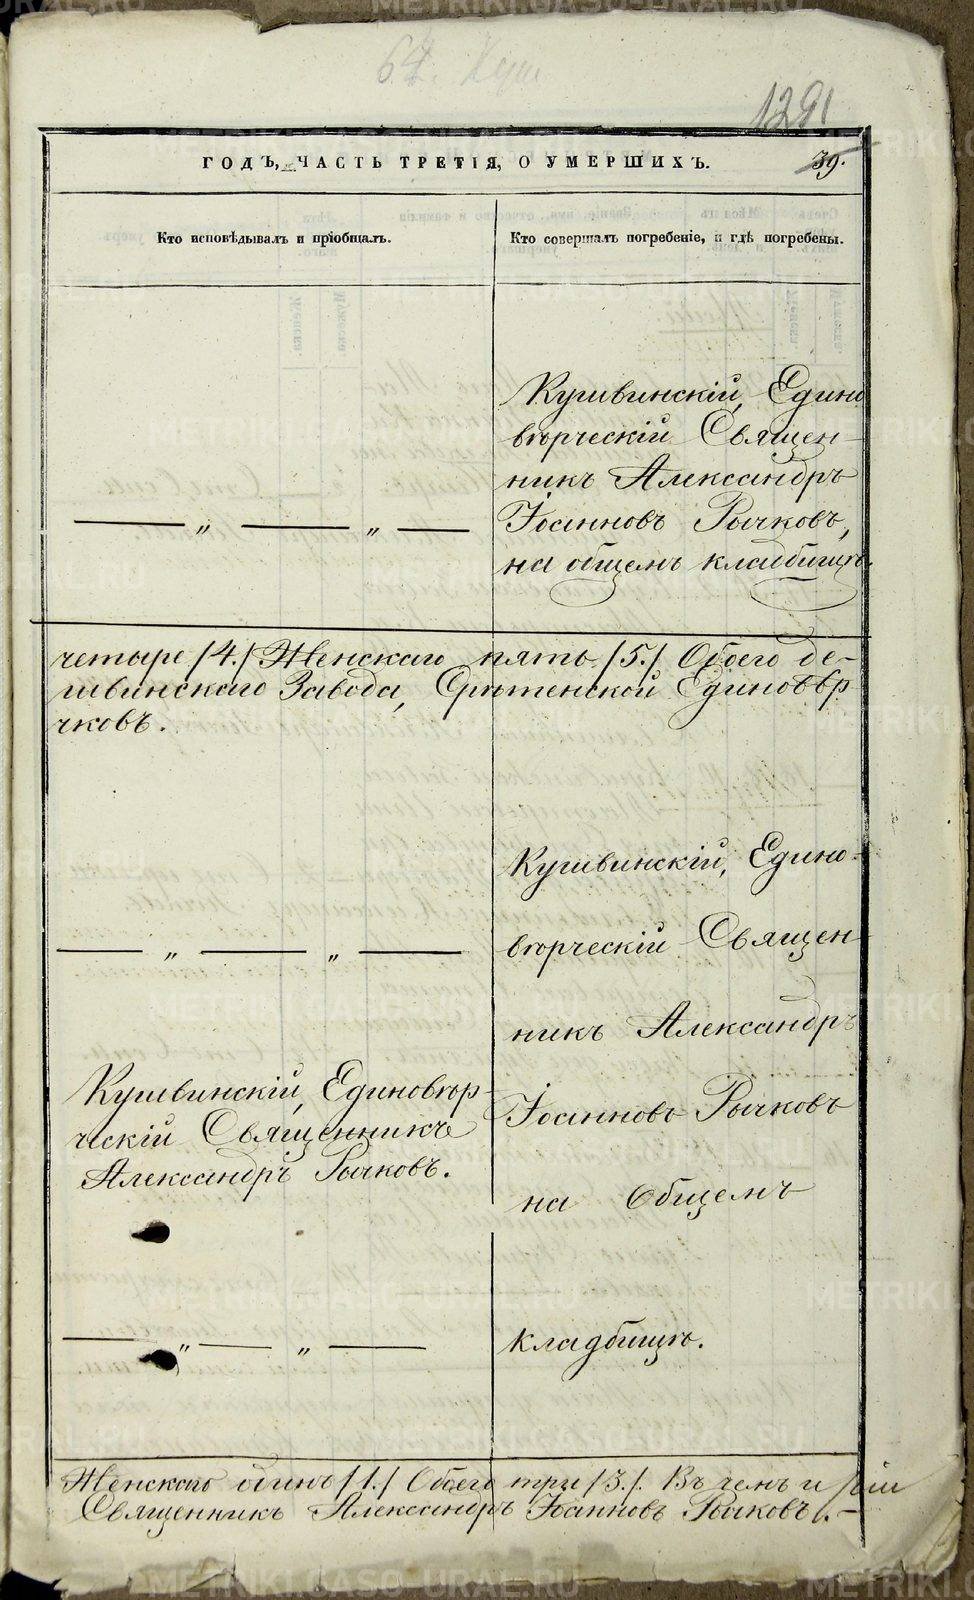 1291
ГОДЪ, ЧАСТЬ ТРЕТІЯ, О УМЕРШИХЪ.
39.
Кто исповѣдывалъ и пріобщалъ.
Кто совершалъ погребеніе, и гдѣ погребены.
Кушвинскій, Едино
вѣрческій Священ-
никъ Александръ
Іоанновъ Рычковъ,
на общемъ кладбищѣ.
— „ — „ —
четыре /4./ Женскаго пять /5./ Обоего де-
швинскаго Завода, Срѣтенской Единовѣр
чковъ.
— „ — „ —
Кушвинскій, Единовѣр-
ческій Священникъ
Александръ Рычковъ.
— „ — „ —
Кушвинскій, Едино-
вѣрческій Священ
никъ Александръ
Іоанновъ Рычковъ
на Общемъ
кладбищѣ.
Женскаго одинъ /1./ Обоего три /3./. Въ чемъ и
Священникъ Александръ Іоанновъ Рычковъ. —
METRIKI.GASO-URAL.RU